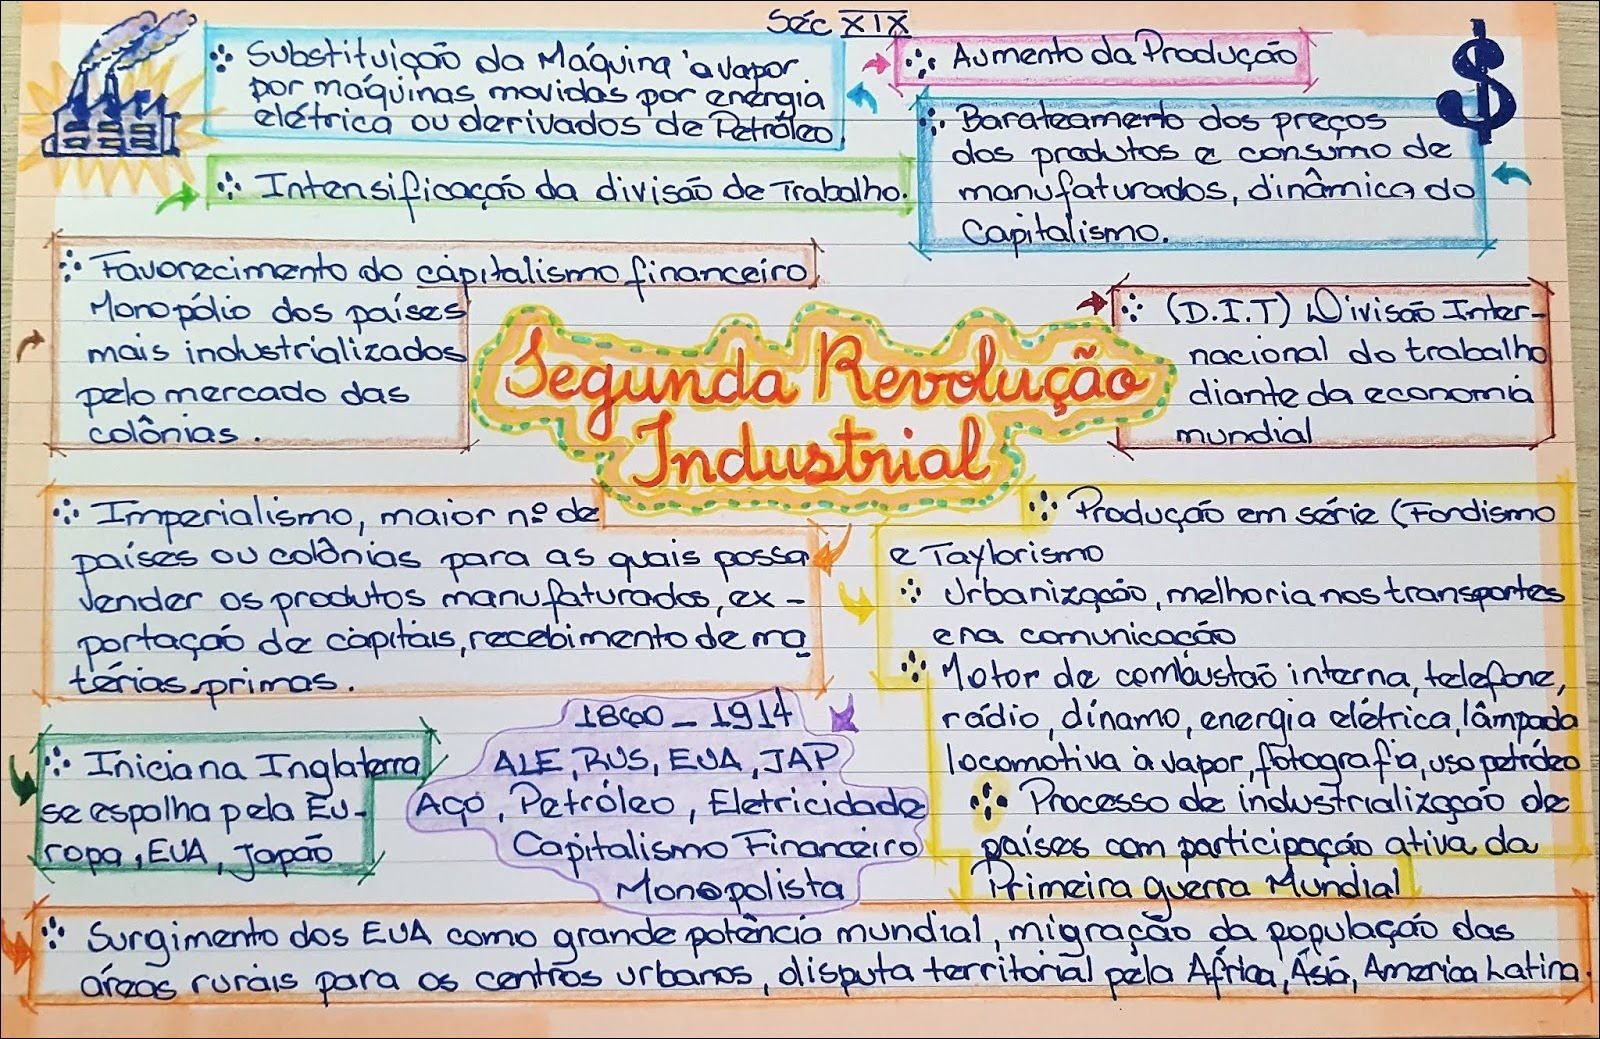 Séc XIX
Substituição da Máquina à vapor.
por máquinas movidas por energia
elétrica ou derivados de Petróleo.
Aumento da Produção
$
Barateamento dos preços
dos produtos e consumo de
manufaturados, dinâmica do
Capitalismo.
Intensificação da divisão de Trabalho.
Favorecimento do capitalismo financeiro
Monopólio dos países
mais industrializados
pelo mercado das
colônias.
Segunda Revolução
Industrial
(D.I.T) Divisão Inter-
nacional do trabalho
diante da economia
mundial
Imperialismo, maior nº de
países ou colônias para as quais possa
vender os produtos manufaturados, ex-
portação de capitais, recebimento de ma
térias-primas.
Produção em série (Fordismo
e Taylorismo
Urbanização, melhoria nos transportes
e na comunicação
Motor de combustão interna, telefone,
rádio, dínamo, energia elétrica, lâmpada
locomotiva à vapor, fotografia, uso petróleo
Processo de industrialização de
países com participação ativa da
Primeira guerra Mundial
Inicia na Inglaterra
se espalha pela Eu-
ropa, EUA, Japão
1860 - 1914
ALE, RUS, EUA, JAP
Aço, Petróleo, Eletricidade
Capitalismo Financeiro
Monopolista
Surgimento dos EUA como grande potência mundial, migração da população das
áreas rurais para os centros urbanos, disputa territorial pela África, Ásia, America Latina.